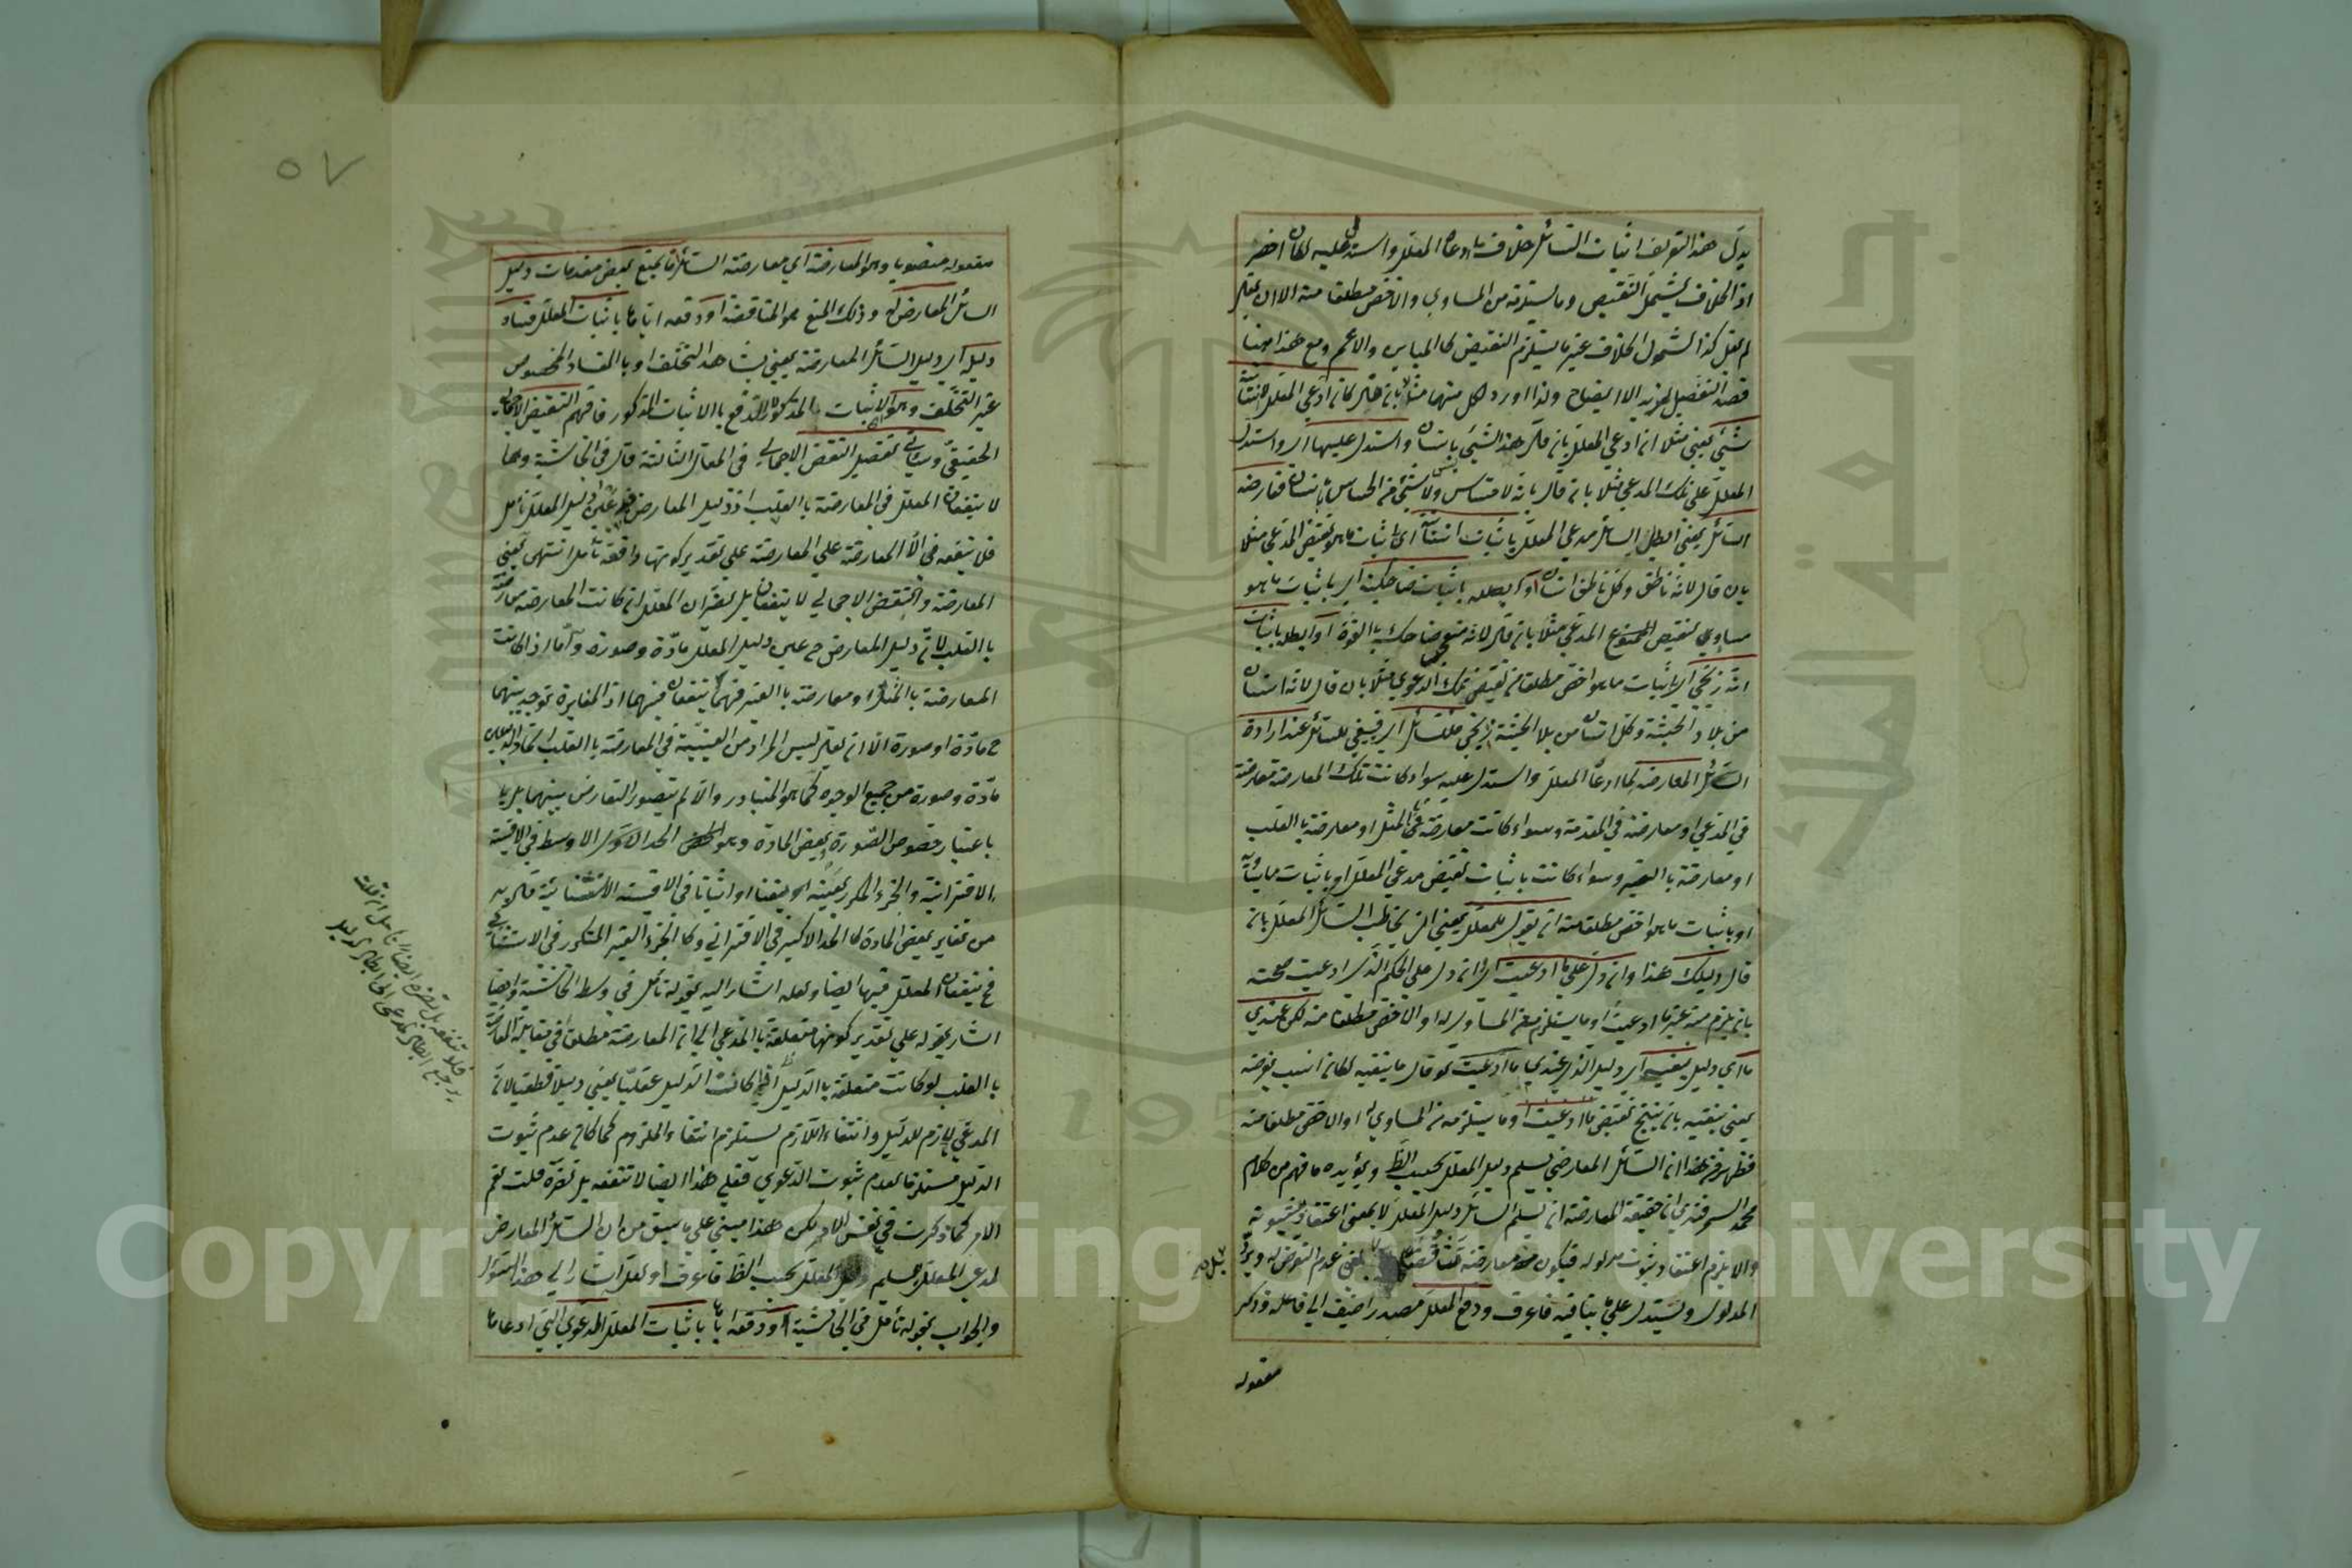 يدل هذا التعريف اثبات السائل خلاف ما ادعاه المعلل واستدل عليه لكان اخصر
اذ الخلاف يشمل النقيض وما يستلزمه من المساوي والاخص مطلقا منه الا ان يقال
لم يقل كذا لشمول الخلاف غير ما يستلزم النقيض كالمباين والاعم ومع هذا ههنا
قصد التفصيل لمزيد الايضاح ولذا اورد لكل منهما مثلا بان قال كان ادعى المعلل انسانية
شيئ يعني مثلا ان ادعى المعلل بان قال هذا الشيئ بانسان واستدل عليها اي واستدل
المعلل على تلك المدعي مثلا بان قال بانه لا حساس ولا شيئ من الحساس بانسان فعارضه
السائل يعني ابطل السائل مدعى المعلل باثبات انسانية اي باثبات ما هو نقيض المدعي مثلا
بان قال لانه ناطق وكل ناطق انسان او ابطله باثبات ضاحكية اي باثبات ما هو
مساوي لنقيض المدعي مثلا بان قال لانه متعجب ضاحك بالقوة او ابطله باثبات
انه زنجي اي باثبات ما هو اخص مطلقا من نقيض تلك الدعوي مثلا بان قال لانه انسان
من بلاد الحبشة وكل انسان من بلاد الحبشة زنجي فللسائل اي فينبغي للسائل عند ارادة
السائل المعارضة لما ادعاه المعلل واستدل عليه سواء كانت تلك المعارضة معارضة
في المدعي او معارضة في المقدمة وسواء كانت معارضة بالمثل او معارضة بالقلب
او معارضة بالغير وسواء كانت باثبات نقيض مدعي المعلل او باثبات ما يساويه
او باثبات ما هو اخص مطلقا منه ان يقول للمعلل يعني ان يخاطب السائل المعلل بان
قال دليلك هذا وان دل على ما ادعيت اي ان دل على الحكم الذي ادعيت صحته
بان يلزم منه عين ما ادعيت او ما يستلزمه من المساوي له او الاخص مطلقا منه لكن عندي
ما اي دليل ينفيه اي دليل الذي عندي ما ادعيت لو قال ما ينفيه لكان انسب بغرضه
يعني ينفيه بان ينتج نقيض ما ادعيت او ما يستلزمه من المساوي له او الاخص مطلقا منه
فظهر من هذا ان السائل المعارض يسلم دليل المعلل بحسب الظ ويؤيده ما فهم من كلام
محمد السمرقندي ان حقيقة المعارضة ان يسلم السائل دليل المعلل لا بمعنى اعتقاد ثبوته
والا يلزم اعتقاد ثبوت مدلوله فيكون معارضته تناقضا بل بمعنى عدم التعرض له ويرد
المدلول ويستدل على ما ينافيه فاعرف ودفع المعلل مصدر اضيف الى فاعله وذكر
مفعوله
٥٧
مفعوله منصوبا وهو المعارضة اي معارضة السائل اما بمنع بعض مقدمات دليل
السائل المعارض له وذلك المنع هو المناقضة او دفعه اياها باثبات المعلل فساد
دليله اي دليل السائل المعارضة يعني بشاهد التخلف او بالفساد المخصوص
غير التخلف وهو الاثبات المذكور الدفع بالاثبات المذكور فافهم النقيض الاجمالي
الحقيقي وسيأتي تفصيل النقض الاجمالي في المقالة الثالثة قال في الحاشية وهما
لا ينفعان المعلل في المعارضة بالقلب اذ دليل المعارض عين دليل المعلل تأمل
فلا ينفعه الا المعارضة على المعارضة على تقدير كونها دافعة تأمل انتهى يعني
المعارضة والنقض الاجمالي لا ينفعان بل يضران المعلل ان كانت المعارضة معارضة
بالقلب لان دليل المعارض ح عين دليل المعلل مادة وصورة واما اذا كانت
المعارضة بالمثل او معارضة بالغير فهما ينفعان فيهما اذ المغايرة توجد بينهما
ح مادة او صورة الا ان يقال ليس المراد من العينية في المعارضة بالقلب اتحاد الدليلين
مادة وصورة من جميع الوجوه كما هو المتبادر والا لم يتصور التعارض بينهما بل
باعتبار خصوص الصورة وبعض المادة وهو الحد الاوسط في الاقيسة
الاقترانية والجزء المكرر بعينه او نفيا او اثباتا في الاقيسة الاستثنائية فلا بد
من تغاير بعض المادة كالحد الاكبر في الاقتراني وكالجزء الغير المتكرر في الاستثنائي
فح ينفعان المعلل فيها ايضا ولعله اشار اليه بقوله تأمل في وسط الحاشية وايضا
اشار بقوله على تقدير كونها متعلقة بالمدعي الى ان المعارضة مطلقا في مقابلة المعارضة
بالقلب لو كانت متعلقة بالدليل اذا كانت الدليل عقليا يعني دليلا قطعيا لان
المدعي لازم للدليل وانتفاء اللازم يستلزم انتفاء الملزوم كما كان عدم ثبوت
الدليل مستلزما لعدم ثبوت الدعوي فعلى هذا ايضا لا تنفعه بل تضره قلت نعم
الامر كما ذكرت في نفس الامر لكن هذا مبني على ما سبق من ان السائل المعارض
لمدعي المعلل يسلم دليل المعلل بحسب الظ فاعرف او لعله اشار الى هذا السؤال
والجواب بقوله تأمل في الحاشية او دفعه اياها باثبات المعلل الدعوي التي ادعاها